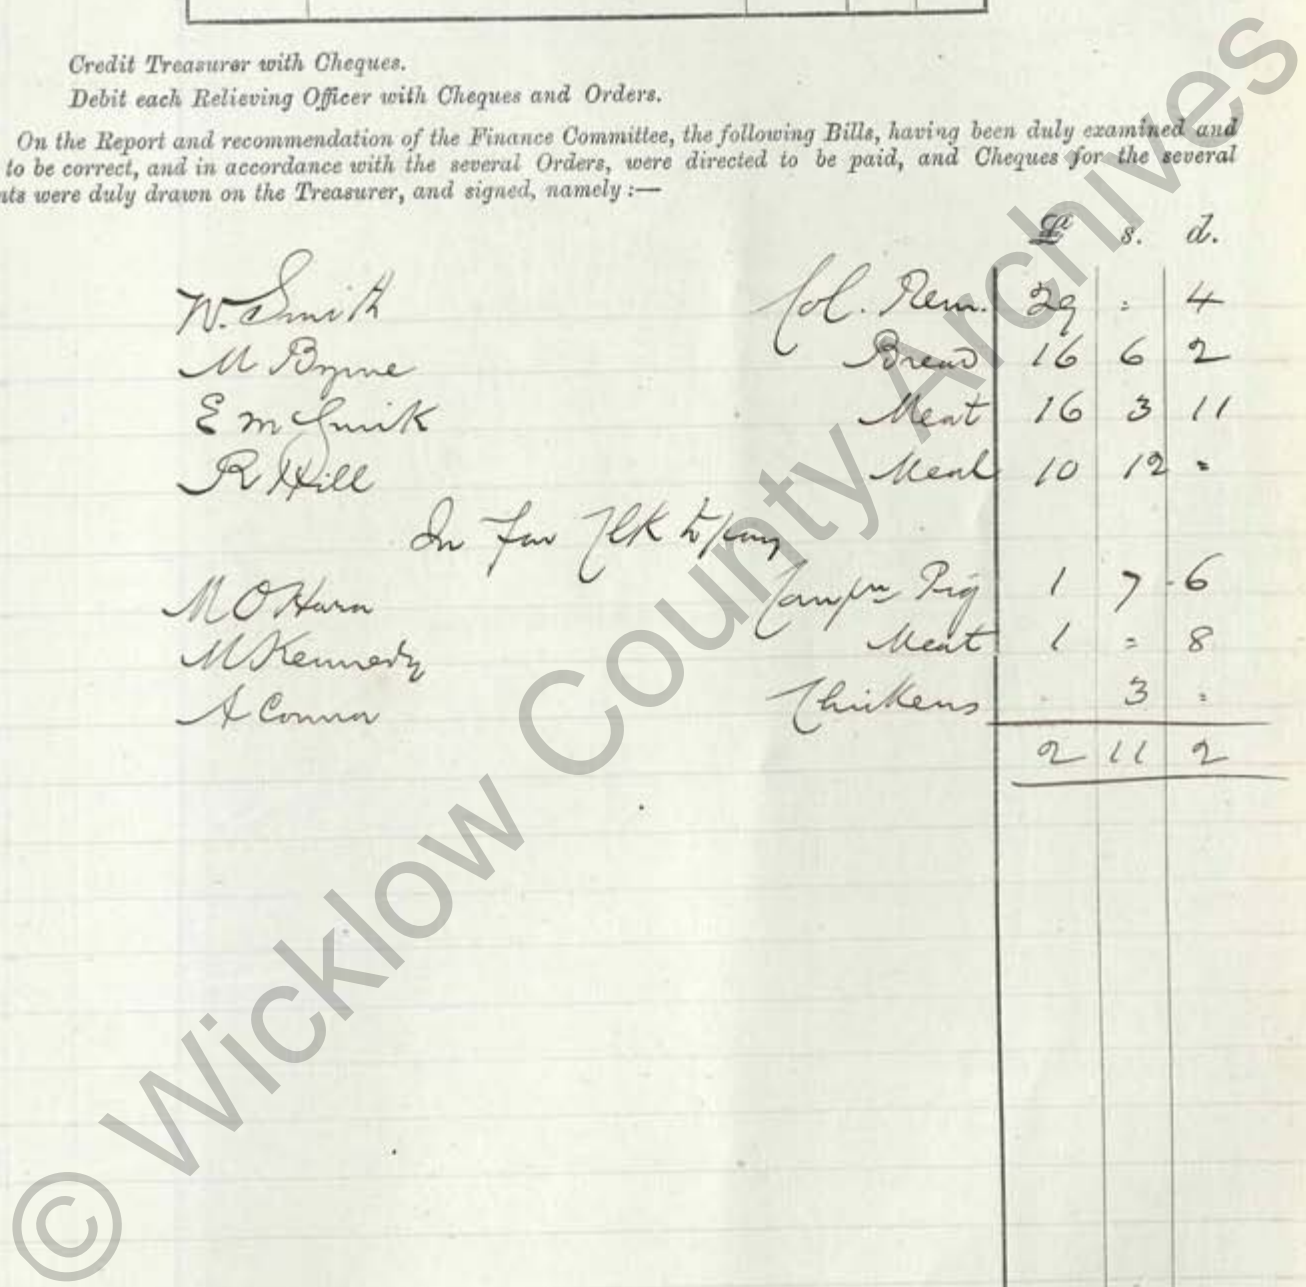 Credit Treasurer with Cheques.
Debit each Relieving Officer with Cheques and Orders.
On the Report and recommendation of the Finance Committee, the following Bills, having been duly examined and
to be correct, and in accordance with the several Orders, were directed to be paid, and Cheques for the several
nts were duly drawn on the Treasurer, and signed, namely :—
£ s. d.
W. Smith Col. Rem. 29 = 4
M Byrne Bread 16 6 2
E McGuirk Meat 16 3 11
R Hill Meal 10 12 =
In fav Clk to pay
M O Hara Pig 1 7 6
M Kennedy Meat 1 = 8
A Connor Chickens 3 =
2 11 2
© Wicklow County Archives